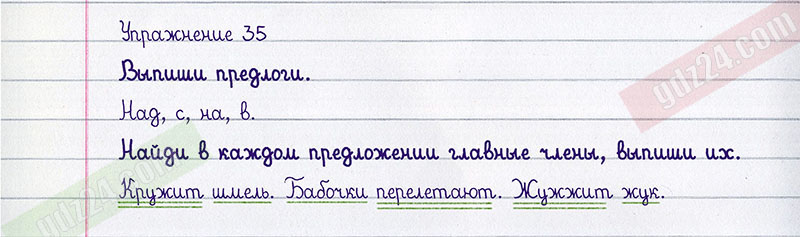 Упражнение 35
Выпиши предлоги.
Над, с, на, в.
Найди в каждом предложении главные члены, выпиши их.
Кружит шмель. Бабочки перелетают. Жужжит жук.
gdz24.com
gdz24.com